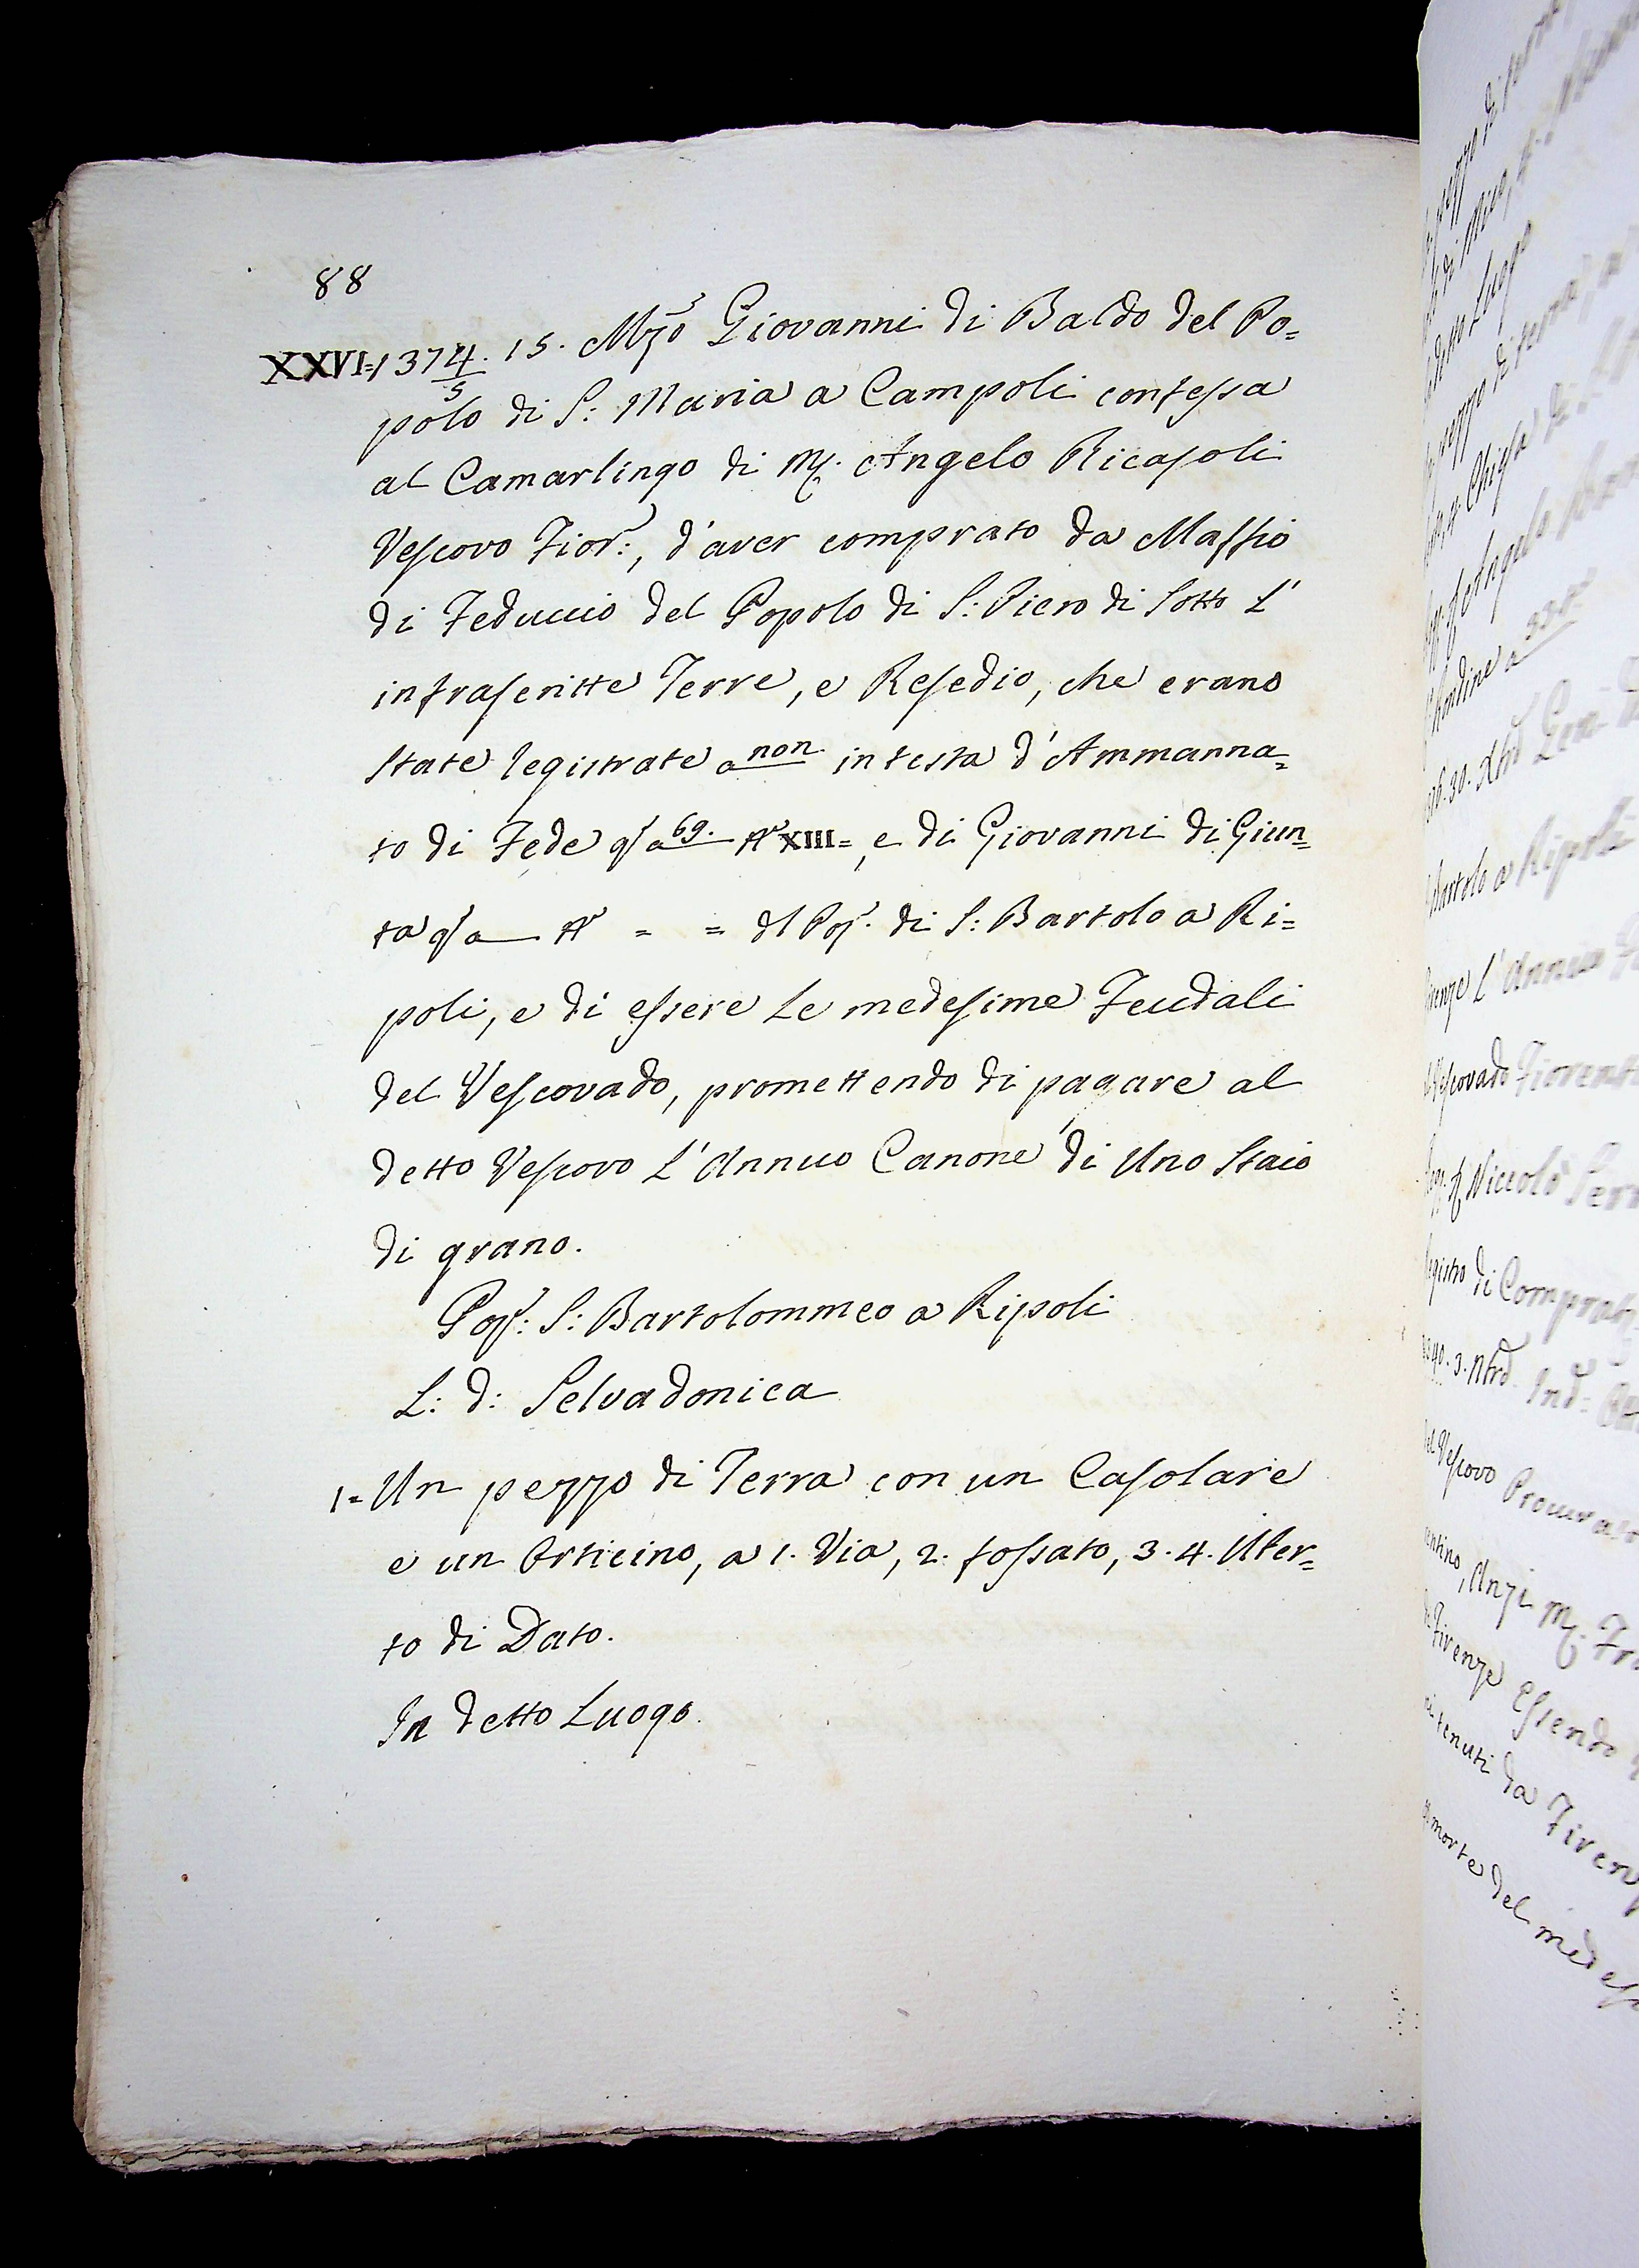 88
XXVI=1374/5. 15. Mzo Giovanni di Baldo del Po=
polo di S: Maria a Campoli confessa
al Camarlingo di Mr. Angelo Ricasoli
Vescovo Fior:, d'aver comprato da Maffio
di Feduccio del Popolo di S: Piero di Sotto L'
infrascritte Terre, e Resedio, che erano
state registrate a non in testa d'Ammanna=
to di Fede qs a 69. No XIII=, e di Giovanni di Giun=
ta qs a No = = dl Pop. di S: Bartolo a Ri=
poli, e di essere Le medesime Feudali
del Vescovado, promettendo di pagare al
detto Vescovo L'Annuo Canone di Uno Staio
di grano.
Pop: S: Bartolommeo a Ripoli
L: d: Selvadonica
1= Un pezzo di Terra con un Casolare
e un Orticino, a 1. Via, 2. fossato, 3. 4. Uber=
to di Dato.
In detto Luogo
detto Luogo
Bartolo a Ripoli
L'Annuo
Vescovado Fiorent
Niccolò
di Comprat
Vescovo Procurat
Anzi Mr.
Firenze Essendo
tenuti da Firen
morte del medes